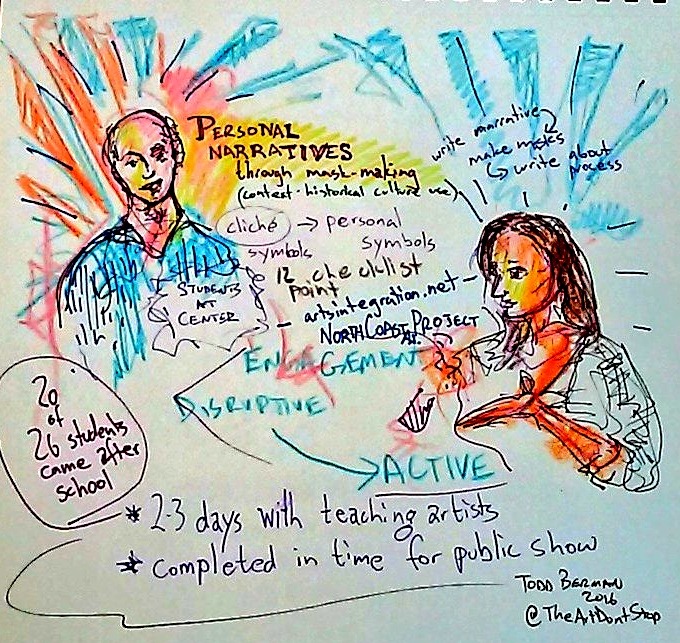 PERSONAL
NARRATIVES
through mask-making
(context-historical culture use)
write narrative
make masks
write about
process
cliché → personal
symbols symbols
12 checklist
point
artsintegration.net
NORTH COAST PROJECT
AI
STUDENTS
AT
CENTER
ENGAGEMENT
DISRUPTIVE
ACTIVE
20
of
26 students
came after
school
* 2-3 days with teaching artists
* completed in time for public show
TODD BERMAN
2016
@TheArtDontStop